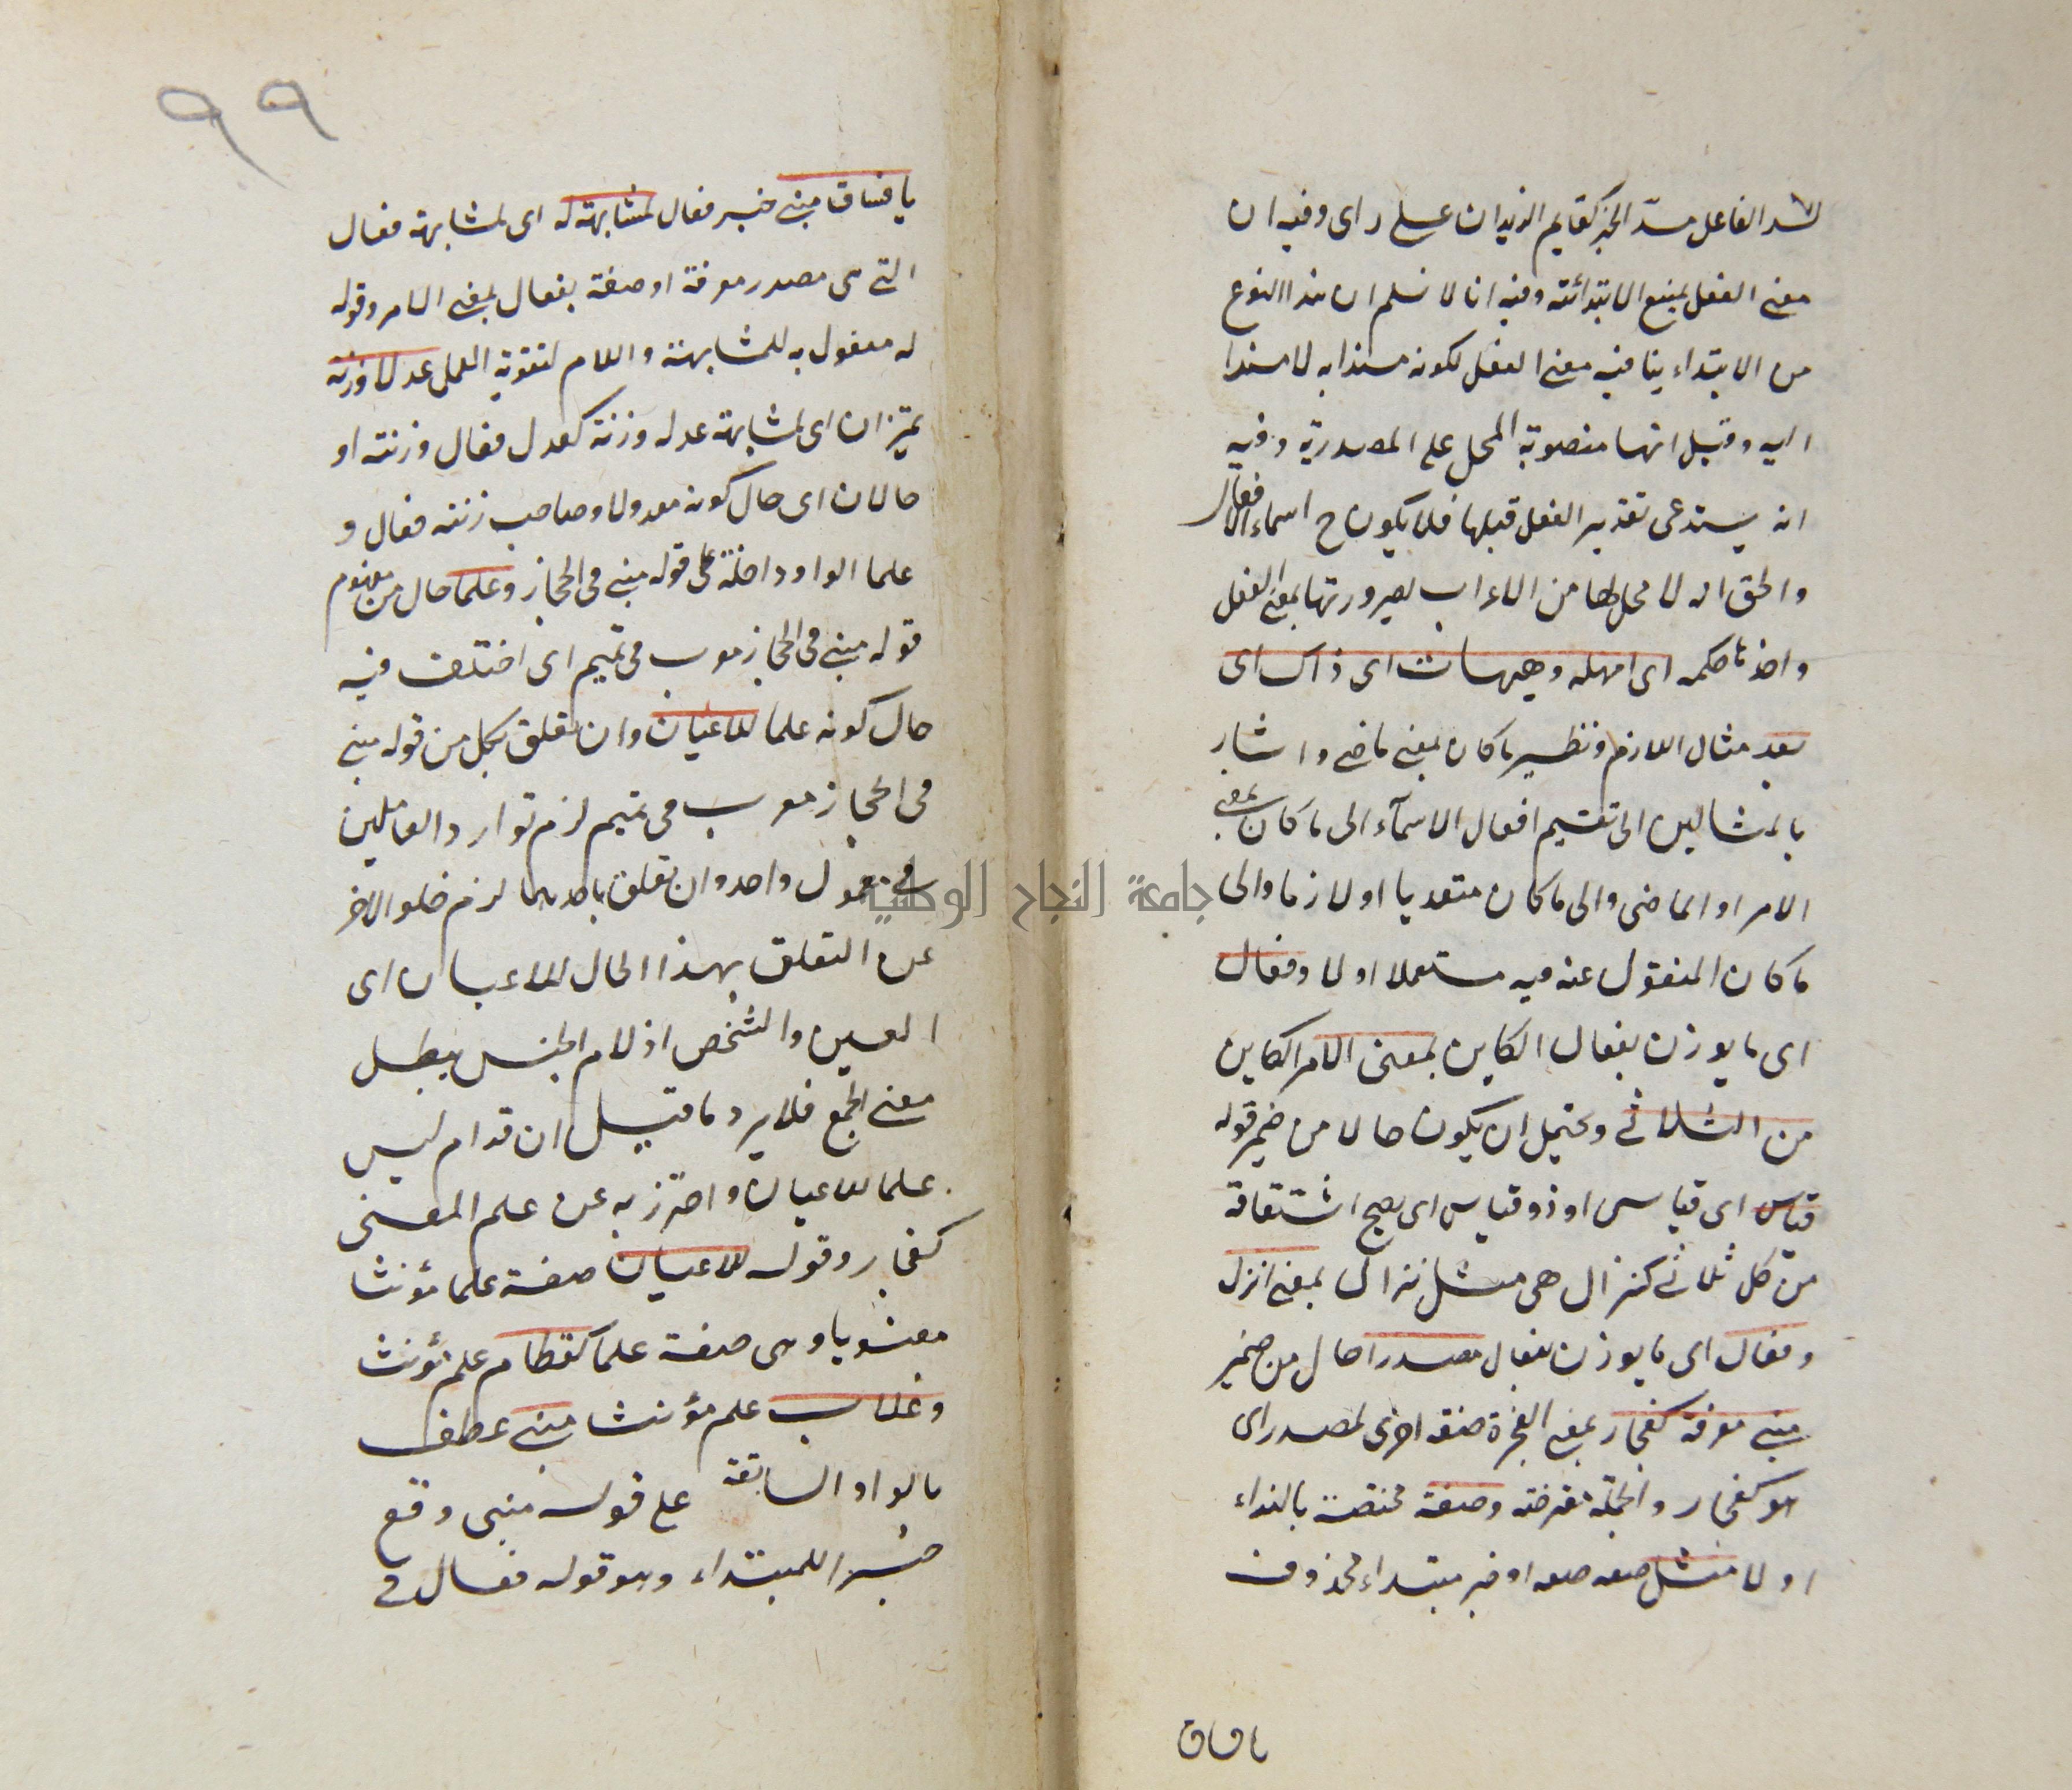 لسد الفاعل مسدّ الخبر كقايم الزيدان على راى وفيه ان
معنى الفعل يمنع الابتدائته وفيه انا لا نسلم ان هذا النوع
من الابتداء ينافيه معنى الفعل لكونه مسندا به لا مسندا
اليه وقيل انها منصوبة المحل على المصدرية وفيه
انه يستدعى تقدير الفعل قبلها فلا يكون ح اسماء الافعال
والحق انه لا محل لها من الاعراب لصيرورتها بمعنى الفعل
واخذنا حكمه اى امهله وهيهات اى ذاك اى
بعد مثال اللازم ونظير ما كان بمعنى ماضى واشار
بالمثالين الى تقسيم افعال الاسمآء الى ما كان بمعنى
الامر او الماضى والى ما كان متعديا او لازما والى
ما كان المنقول عنه فيه مستعملا او لا وفعال
اى ما يوزن بفعال الكاين بمعنى الامر الكاين
من الثلاثى ويحتمل ان يكون حالا من ضمير قوله
قياس اى قياسى او ذو قياس اى يصح اشتقاقه
من كل ثلاثى كنزال هى مثل نزال بمعنى انزل
وفعال اى ما يوزن بفعال مصدرا حال من ضمير
مبنى معرفة كفجار بمعنى الفجرة صفة اخرى لمصدر اى
هو كفجار والجملة معرضة وصفة مختصة بالنداء
او لا مثل صفه صفه او خبر مبتداء محذوف
يا فساق
جامعة النجاح الوطنية
٩٩
يا فساق مبنى خبر فعال لمشابهته له اى لمشابهة فعال
التى هى مصدر معرفة او صفة بفعال بمعنى الامر وقوله
له مفعول به للمشابهة واللام لتقوية العمل عدلا وزنة
تميزان اى لمشابهة عدله وزنة كعدل فعال وزنته او
حالان اى حال كونه معدولا وصاحب زنته فعال و
علما الواو داخلة على قوله مبنى فى الحجاز وعلما حال من مفهوم
قوله مبنى فى الحجاز معرب فى تميم اى اختلف فيه
حال كونه علما للاعيان وان تعلق بكل من قوله مبنى
فى الحجاز معرب فى تميم لزم توارد العاملين
فى معمول واحد وان تعلق باحدهما لزم خلو الاخر
عن التعلق بهذا الحال للاعيان اى
العين والشخص اذ لام الجنس يبطل
معنى الجمع فلا يرد ما قيل ان قدام ليس
علما للاعيان واحترز به عن علم المعنى
كفجار وقوله للاعيان صفة علما مؤنثا
معنويا وهى صفة علما كقطام علم مؤنث
وغلاب علم مؤنث مبنى عطف
بالواو السابقة على قوله مبنى وقع
خبرا للمبتداء وهو قوله فعال فى